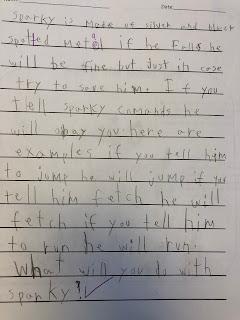 Date
sparky is made of silver and black
spotted metal if he Falls he
will be fine. but Just in case
try to save him. If you
tell sparky comands he
will obay you. here are
examples if you tell him
to jump he will jump if you
tell him fetch he will
fetch if you tell him
to run he will run.
What will you do with
sparky?